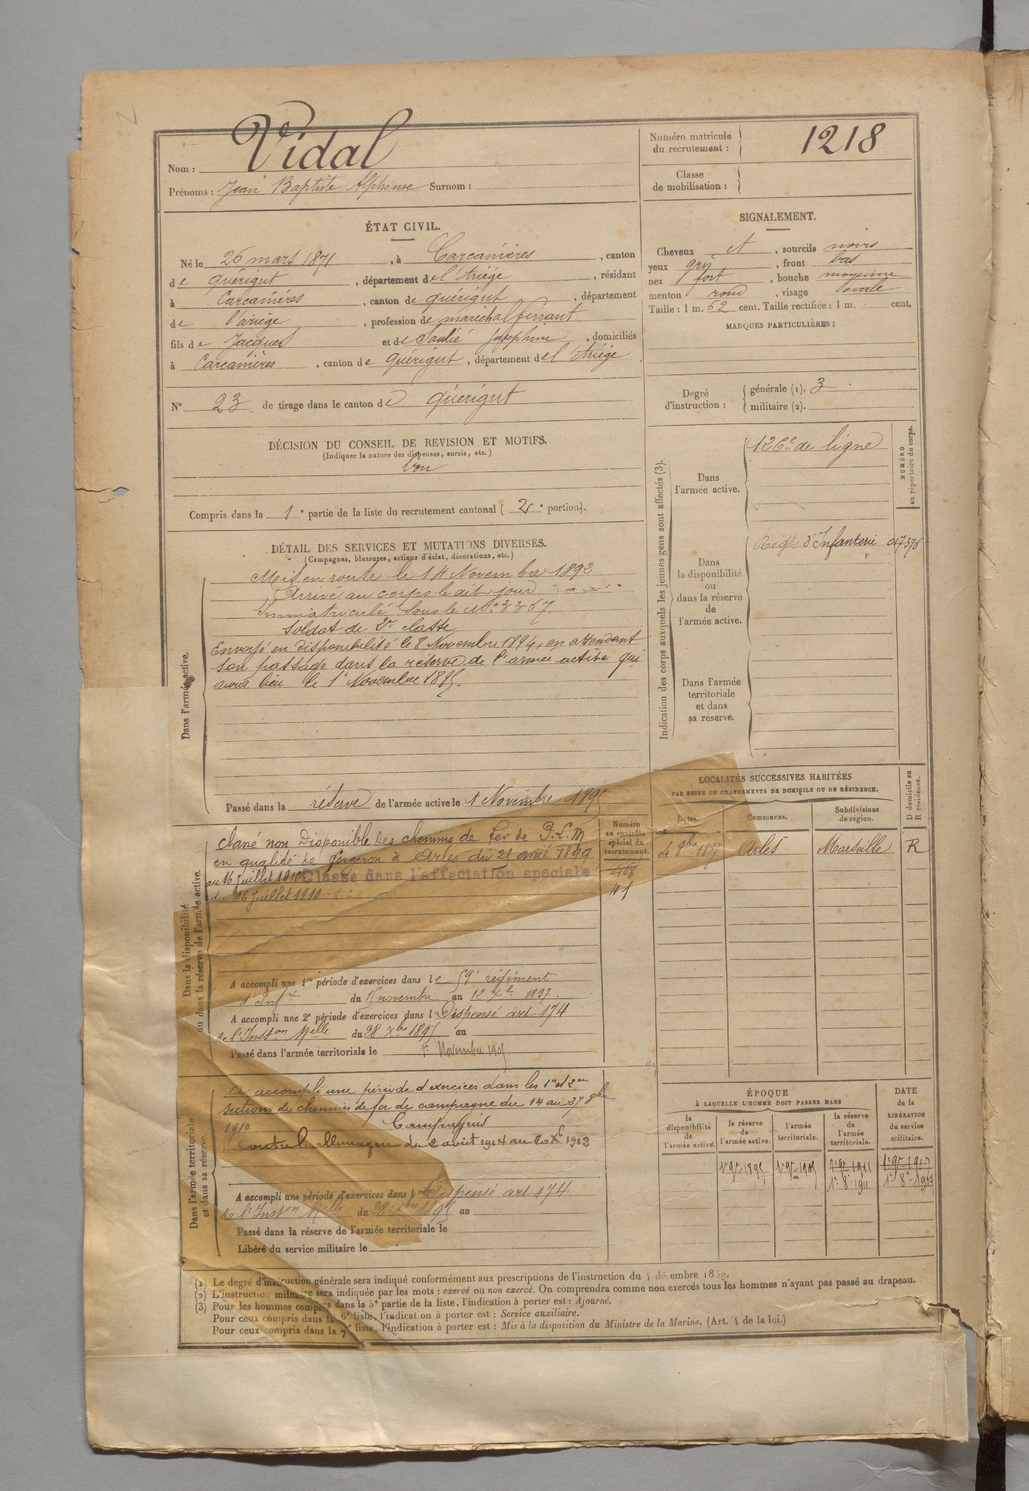 Nom : Vidal
Prénoms : Jean Baptiste Alphonse Surnom :
Numéro matricule du recrutement : 1218
Classe de mobilisation :
ÉTAT CIVIL.
Né le 26 mars 1871, à Carcanières, canton
de Quérigut, département de l'Ariège, résidant
à Carcanières, canton de Quérigut, département
de l'ariège, profession de maréchal ferrant
fils de Jacques et de Joséphine, domiciliés
à Carcanières, canton de Quérigut, département de l'Ariège
N° 23 de tirage dans le canton de Quérigut
SIGNALEMENT.
Cheveux et, sourcils noirs
yeux gris, front bas
nez fort, bouche moyenne
menton rond, visage ovale
Taille : 1 m. 62 cent. Taille rectifiée : 1 m. cent.
MARQUES PARTICULIÈRES :
Degré d'instruction : générale (1). 3
militaire (2).
DÉCISION DU CONSEIL DE REVISION ET MOTIFS.
(Indiquer la nature des dispenses, sursis, etc.)
bon
Compris dans la 1e partie de la liste du recrutement cantonal (2e portion).
DÉTAIL DES SERVICES ET MUTATIONS DIVERSES.
(Campagnes, blessures, actions d'éclat, décorations, etc.)
Dans l'armée active.
Mis en route le 14 Novembre 1892
Arrivé au corps le dit jour
Immatriculé sous le N° 3367
Soldat de 2e classe
Envoyé en disponibilité le 8 Novembre 1894, en attendant
son passage dans la réserve de l'armée active qui
aura lieu le 1e Novembre 1895.
Passé dans la réserve de l'armée active le 1 Novembre 1895
Indication des corps auxquels les jeunes gens sont affectés (3).
NUMÉRO au répertoire du corps.
Dans l'armée active.
126e de ligne
Dans la disponibilité ou dans la réserve de l'armée active.
Regt d'Infanterie
Dans l'armée territoriale et dans sa réserve.
LOCALITÉS SUCCESSIVES HABITÉES
PAR SUITE DE CHANGEMENTS DE DOMICILE OU DE RÉSIDENCE.
Dates. Communes. Subdivisions de région. D domicile ou R résidence.
Arles Marseille R
Numéro au contrôle spécial du recrutement.
Dans la disponibilité ou dans la réserve de l'armée active.
classé non Disponible des chemins de fer de P.L.M
en qualité de forgeron à Arles du 21 avril 1899
au 16 Juillet 1910 Classé dans l'affectation spéciale
du 16 Juillet 1910
A accompli une 1re période d'exercices dans le 59e régiment
d'Infie du novembre au 1897
A accompli une 2e période d'exercices dans l Dispensé art 174
de l'Inston Melle du 28 Xbre 1895 au
Passé dans l'armée territoriale le 1er Novembre 1905
Dans l'armée territoriale et dans sa réserve.
A accompli une période d'exercices dans les 1re et 2me
sections de chemins de fer de campagne du 14 au
1910
Campagnes
Contre l'allemagne du 2 août 1914 au
A accompli une période d'exercices dans l Dispensé art 174
de l'Inston Melle du 28 Xbre 1895 au
Passé dans la réserve de l'armée territoriale le
Libéré du service militaire le
ÉPOQUE
À LAQUELLE L'HOMME DOIT PASSER DANS
la disponibilité de l'armée active. la réserve de l'armée active. l'armée territoriale. la réserve de l'armée territoriale.
DATE de la LIBÉRATION du service militaire.
1er 9bre 1895 1er 9bre 1905
(1) Le degré d'instruction générale sera indiqué conformément aux prescriptions de l'instruction du 4 décembre
(2) L'instruction militaire sera indiquée par les mots : exercé ou non exercé. On comprendra comme non exercés tous les hommes n'ayant pas passé au drapeau.
(3) Pour les hommes compris dans la 5e partie de la liste, l'indication à porter est : Ajourné.
Pour ceux compris dans la 6e liste, l'indication à porter est : Service auxiliaire.
Pour ceux compris dans la 7e liste, l'indication à porter est : Mis à la disposition du Ministre de la Marine. (Art. 4 de la loi.)